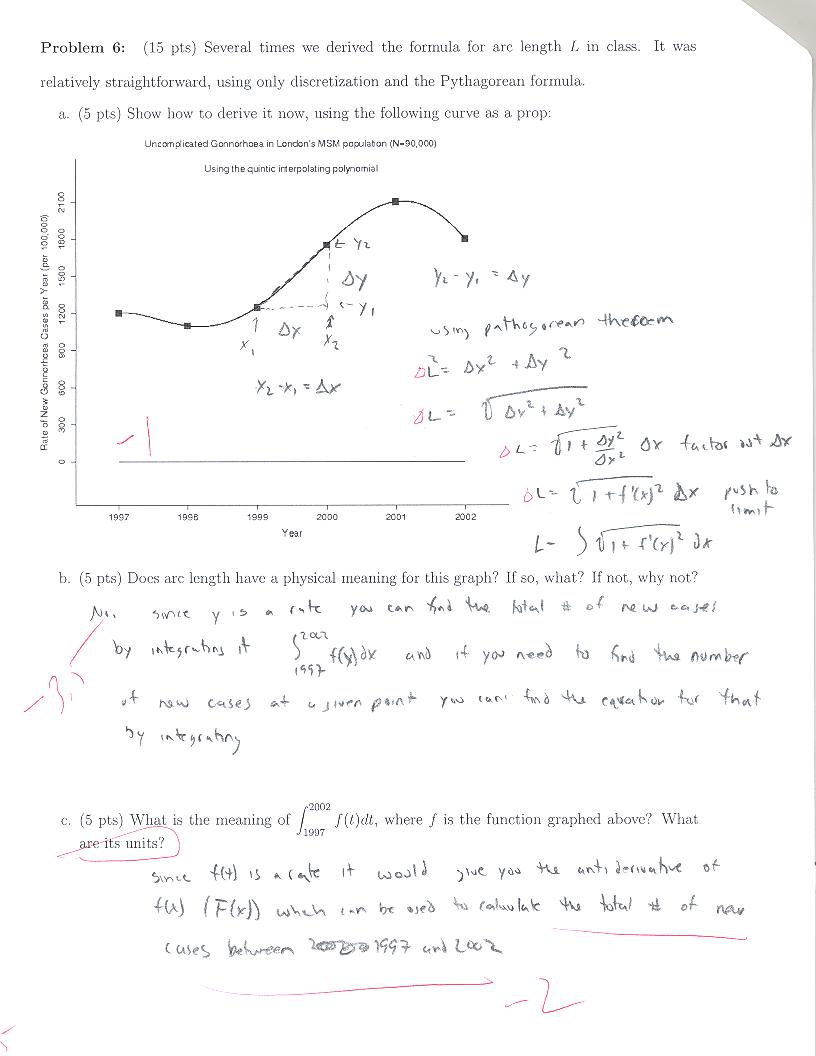 Problem 6: (15 pts) Several times we derived the formula for arc length L in class. It was
relatively straightforward, using only discretization and the Pythagorean formula.
a. (5 pts) Show how to derive it now, using the following curve as a prop:
Uncomplicated Gonnorhoea in London's MSM population (N=90,000)
Using the quintic interpolating polynomial
Rate of New Gonnorhoea Cases per Year (per 100,000)
2100
1800
1500
1200
900
600
300
0
1997 1998 1999 2000 2001 2002
Year
← y₂
Δy
← y₁
↑ Δx ↑
x₁ x₂
x₂ - x₁ = Δx
-1
y₂ - y₁ = Δy
using pathogorean theorem
ΔL² = Δx² + Δy²
ΔL = √(Δx² + Δy²)
ΔL = √(1 + Δy²/Δx²) Δx factor out Δx
ΔL = √(1 + f'(x)²) Δx push to
limit
L = ∫ √(1 + f'(x)²) dx
b. (5 pts) Does arc length have a physical meaning for this graph? If so, what? If not, why not?
No, since y is a rate you can find the total # of new cases
by integrating it ∫₁₉₉₇²⁰⁰² f(x)dx and if you need to find the number
-3
of new cases at a given point you can find the equation for that
by integrating
c. (5 pts) What is the meaning of ∫₁₉₉₇²⁰⁰² f(t)dt, where f is the function graphed above? What
are its units?
since f(t) is a rate it would give you the antiderivative of
f(x) (F(x)) which can be used to calculate the total # of new
cases between 1997 and 2002
-2